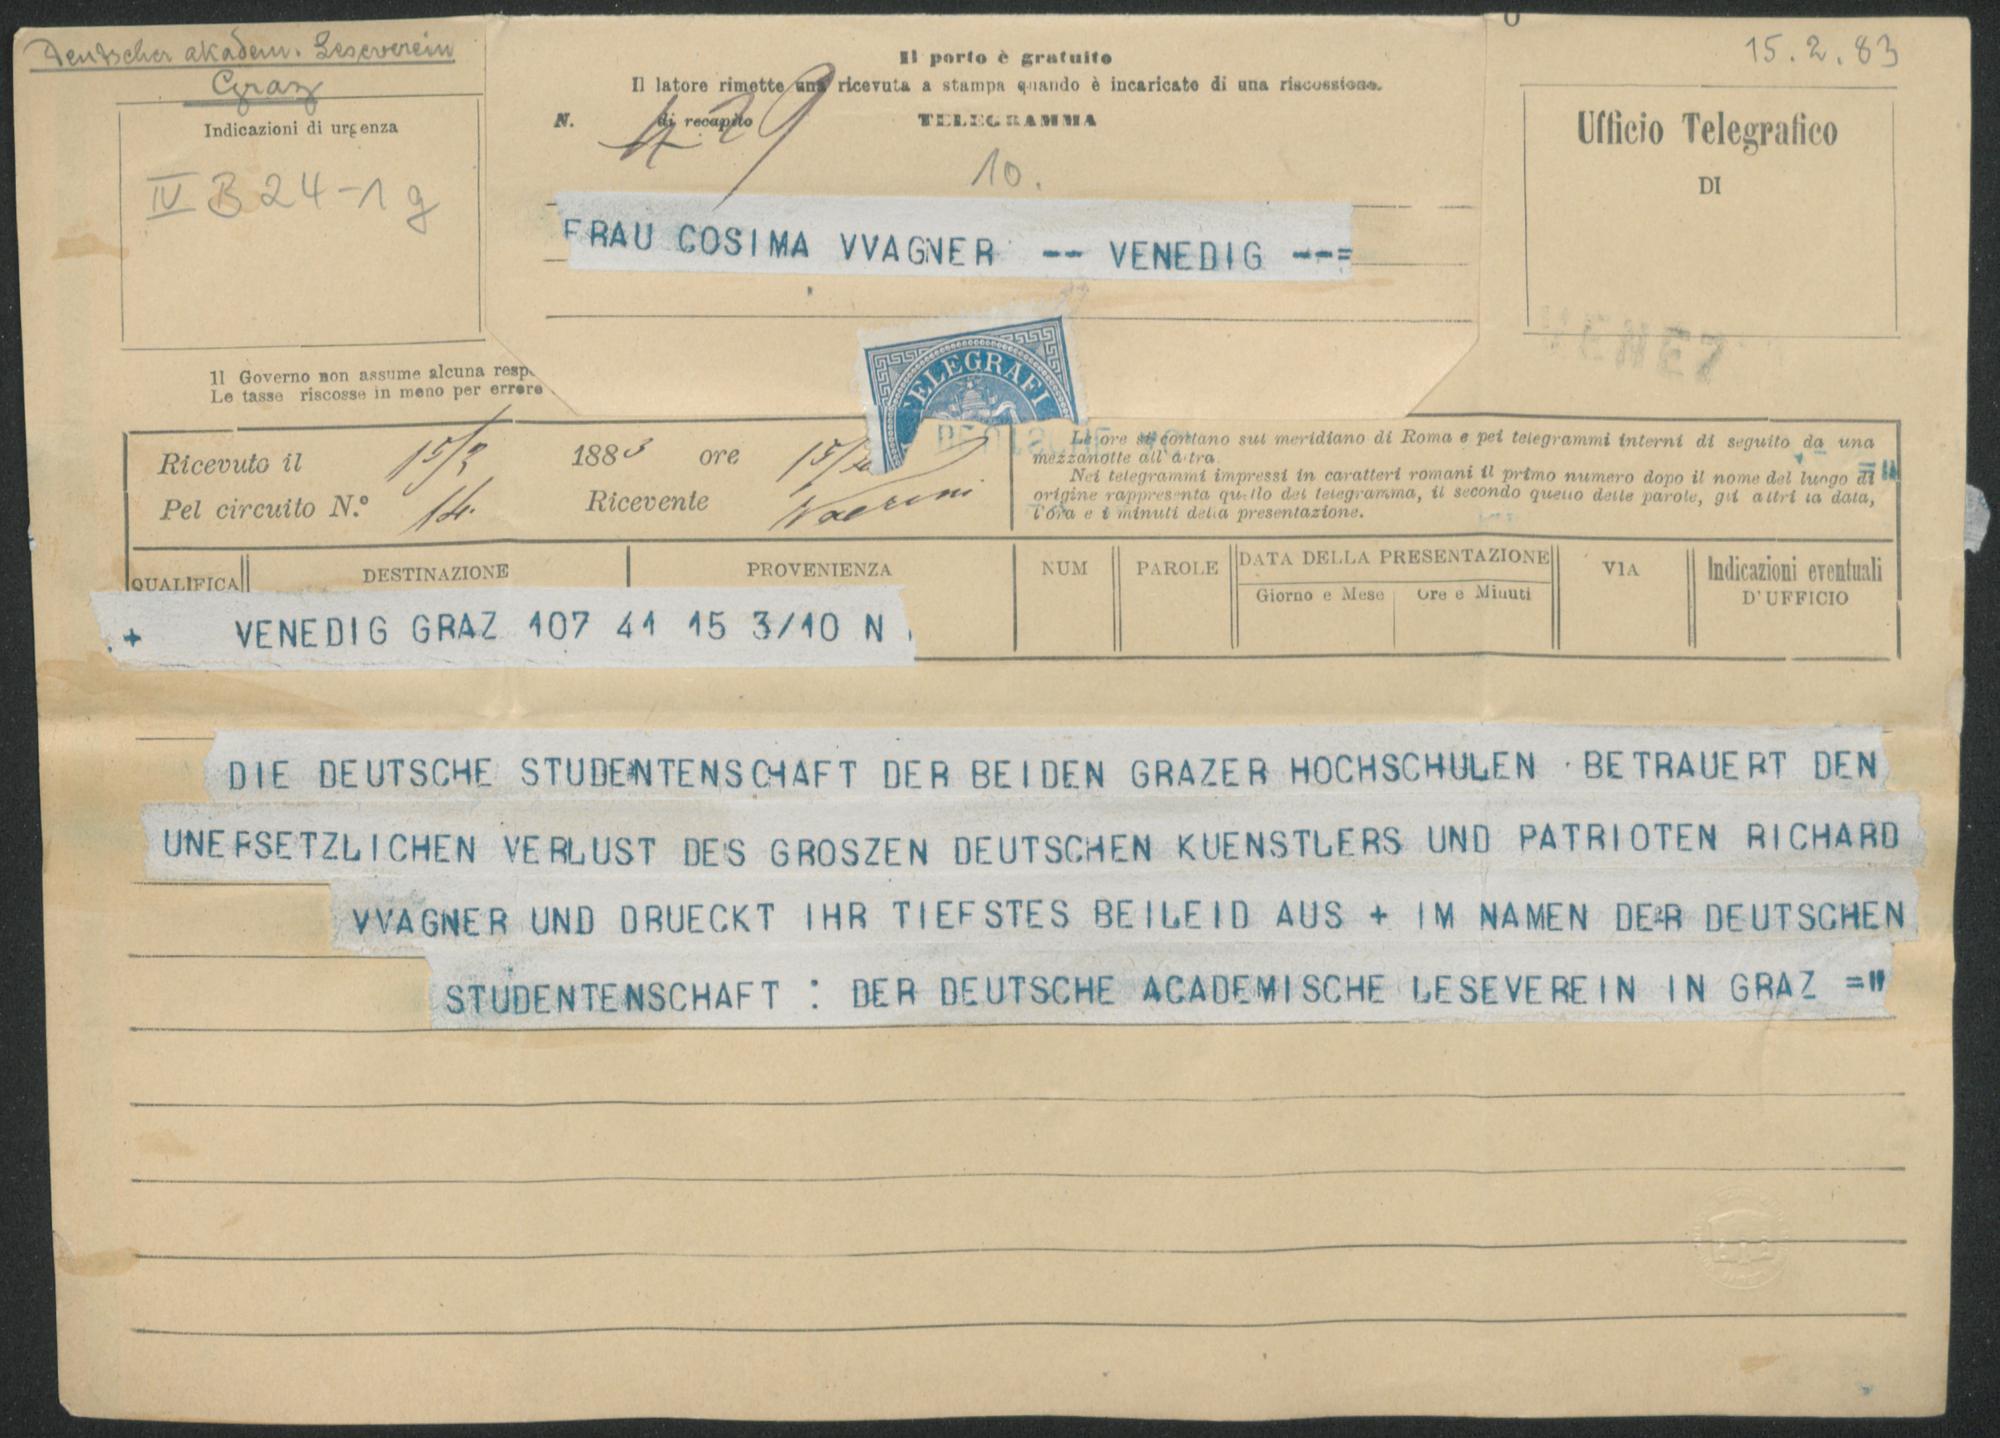 Deutscher akadem. Leseverein
Graz
15.2.83
Indicazioni di urgenza
IV B 24-1 g
Il porto è gratuito
Il latore rimette una ricevuta a stampa quando è incaricato di una riscossione.
N. 429 di recapito TELEGRAMMA
10.
Ufficio Telegrafico
DI
FRAU COSIMA VVAGNER -- VENEDIG --=
TELEGRAFI
Il Governo non assume alcuna resp
Le tasse riscosse in meno per errore
Ricevuto il 15/2 1883 ore 15/
Pel circuito N.º 14. Ricevente
Le ore si contano sul meridiano di Roma e pei telegrammi interni di seguito da una
mezzanotte all'altra.
Nei telegrammi impressi in caratteri romani il primo numero dopo il nome del luogo di
origine rappresenta quello del telegramma, il secondo quello delle parole, gli altri la data,
l'ora e i minuti della presentazione.
QUALIFICA DESTINAZIONE PROVENIENZA NUM PAROLE DATA DELLA PRESENTAZIONE VIA Indicazioni eventuali
D'UFFICIO
Giorno e Mese Ore e Minuti
+ VENEDIG GRAZ 107 41 15 3/10 N
DIE DEUTSCHE STUDENTENSCHAFT DER BEIDEN GRAZER HOCHSCHULEN BETRAUERT DEN
UNERSETZLICHEN VERLUST DES GROSZEN DEUTSCHEN KUENSTLERS UND PATRIOTEN RICHARD
VVAGNER UND DRUECKT IHR TIEFSTES BEILEID AUS + IM NAMEN DER DEUTSCHEN
STUDENTENSCHAFT : DER DEUTSCHE ACADEMISCHE LESEVEREIN IN GRAZ ="